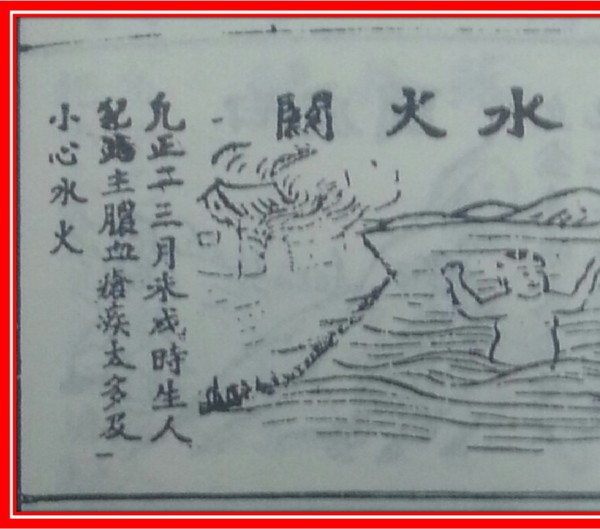 水火關
凡正二三月未戌時生人
犯主膿血瘡疾太多及
小心水火